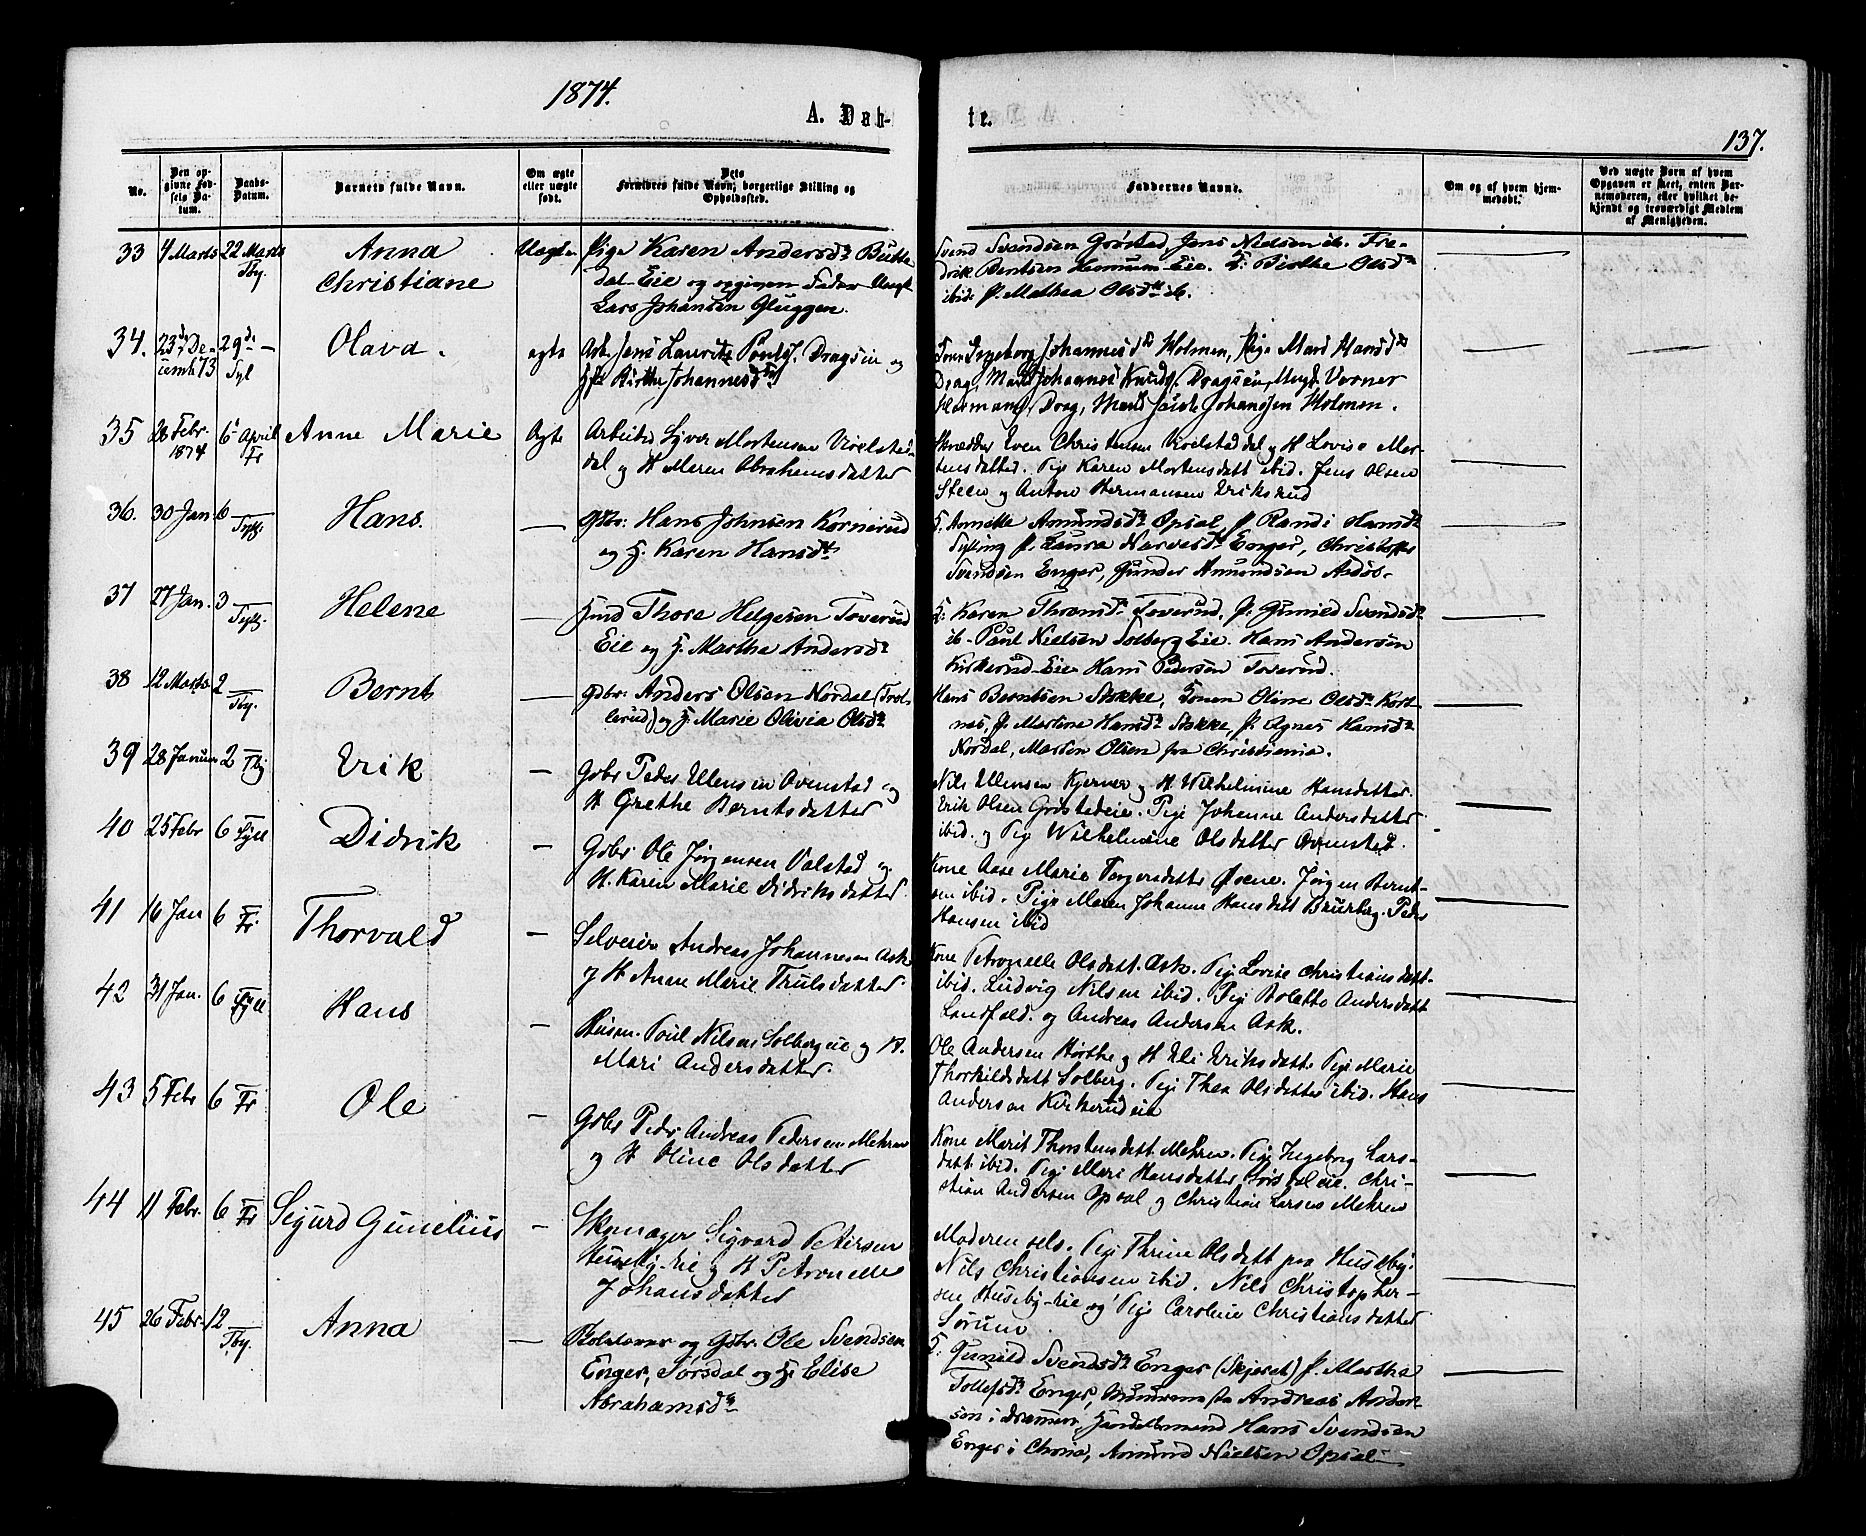 1874.
A. Døb-
te.
137.
No.
Den op-
givne Fød-
sels Da-
tum.
Daabs-
Datum.
Barnets fulde Navn.
Om ægte
eller uægte
født.
Dets
Forældres fulde Navn, borgerlige Stilling og
Opholdssted.
Faddernes Navne.
Om og af hvem hjem-
medøbt.
Ved uægte Børn af hvem
Opgaven er skeet, enten Bar-
nemoderen, eller hvilket be-
kjendt og troværdigt Medlem
af Menigheden.
33 4 Marts 22 Marts Anna Uægte Pige Karen Andersdt
Tby. Christiane dal Eie og opgiven Fader Ungk.
Lars Johansen Gluggen.
Svend Svendsen Grøstad, Jens Nielsen ib. Fre-
drik Berntsen Hennum Eie. K: Birthe Olsdt
ibid. P. Mathea Olsdtt ib.
34. 23de De- 29de Olava. ægte Arb. Jens Lauritz Dragseie og
cemb. 73 Tyl Hst. Birthe Johannesdtr
Kone Ingeborg Johannesdtr Holmen, Pige Mari Hansdtr
Drag, Johannes Dragseie, Ungk. Verner
Hermans. Drag, Johanssen Holmen.
35 28 Febr. 6 April Anne Marie Ægte Arbeider Syver Mortensen
1874 Fr dal og H Maren Abrahamsdatter
Skrædder Even Christensen og H Lovise Mor-
tensdatter. Pige Karen Mortensdatt ibid. Jens Olsen
Steen og Anton Hermansen Eriksrud
36. 30 Jan. 6 Tyll. Hans. — Gbr: Hans Johnsen Kornerud
og H. Karen Hansdtt
K. Annette Amundsdt Opsal, P. Randi Hansdt
Tylling P. Laura Narvesdt Enger, Christoffer
Svendsen Enger, Gunder Amundsen Aasos-
37 27 Jan. 3 Tyll. Helene — Husmd Thore Helgesen Toverud
Eie og H. Martha Andersdt
K: Karen Thoresdt Toverud, P. Gunild Svendsdt
ib. Paul Nielsen Solberg Eie. Hans Andersen
Kirkerud-Eie Hans Pedersen Toverud.
38 12 Marts 2 Tby. Bernt — Gdbr: Anders Olsen Nordal (Trol-
lerud) og H. Marie Olivia Olsdt
Hans Berntsen Sokke, Konen Oline Olsdt Kort-
næs, P. Martine Hansdt Sokke, P. Agnes Hansdt
Nordal, Morten Olsen fra Christiania.
39 28 Januar 2 Tby Erik — Gdbr Peder Ellensen Ovenstad og
H Grethe Berntsdatter
Nils Ellensen Kjerner og H Wilhelmine Hansdatter.
Erik Olsen Grøstadeie. Pige Johanne Andersdatter
ibid. og Pige Wilhelmine Olsdatter Ovenstad.
40 25 Febr 6 Tyll Didrik — Gdbr Ole Jørgensen Valstad og
H. Karen Marie Didriksdatter
Kone Aase Marie Torgersdatter Øvene. Jørgen Bernt-
sen ibid. Pige Maren Johanne Hansdatt Bjurberg. Peder
Hansen ibid
41 16 Jan 6 Fr. Thorvald — Selveier Andreas Johannesen Ask
og H Anne Marie Trulsdatter
Kone Petronelle Olsdatt. Ask. Pige Lovise Christiansdatt-
ibid. Ludvig Nilsen ibid. Pige Bolette Andersdatt
og Andreas Andersen Ask.
42 31 Jan. 6 Tyll Hans — Husm. Poul Nilsen Solbergeie og H.
Mari Andersdatter.
Ole Andersen Hørthe og H Eli Eriksdatt. Pige Marie
Thorkildsdatt Solberg. Pige Thea Olsdatter ibid. Hans
Andersen Kirkerudeie
43 5 Febr 6 Fr Ole — Gdbr Peder Andreas Pedersen Mehren
og H Oline Olsdatter
Kone Marit Thorstensdatt Mehren. Pige Ingeborg Lars-
datt ibid. Pige Mari Hansdatter Chri-
stian Andersen Opsal og Christian Larsen Mehren
44 11 Febr. 6 Fr Sigurd Gunelius — Skomager Sigvard Petersen
Huseby-eie og H Petronelle
Johansdatter
Moderen selv. Pige Thrine Olsdatt paa Huseby.
Nils Christiansen ibid. Nils Christopher-
sen Huseby-eie og Pige Caroline Christiansdatter
Sørum.
45 26 Febr. 12 Tby. Anna — og Gdbr. Ole Svendsen
Enger, Sørsdal og H. Elise
Abrahamsdt
K: Gunild Svendsdt Enger (Skjeset) P. Martha
Tollefsdt Enger, Andreas Ander-
sen i Dramen, Handelsmand Hans Svendsen
Enger i Chrnia, Amund Nielsen Opsal